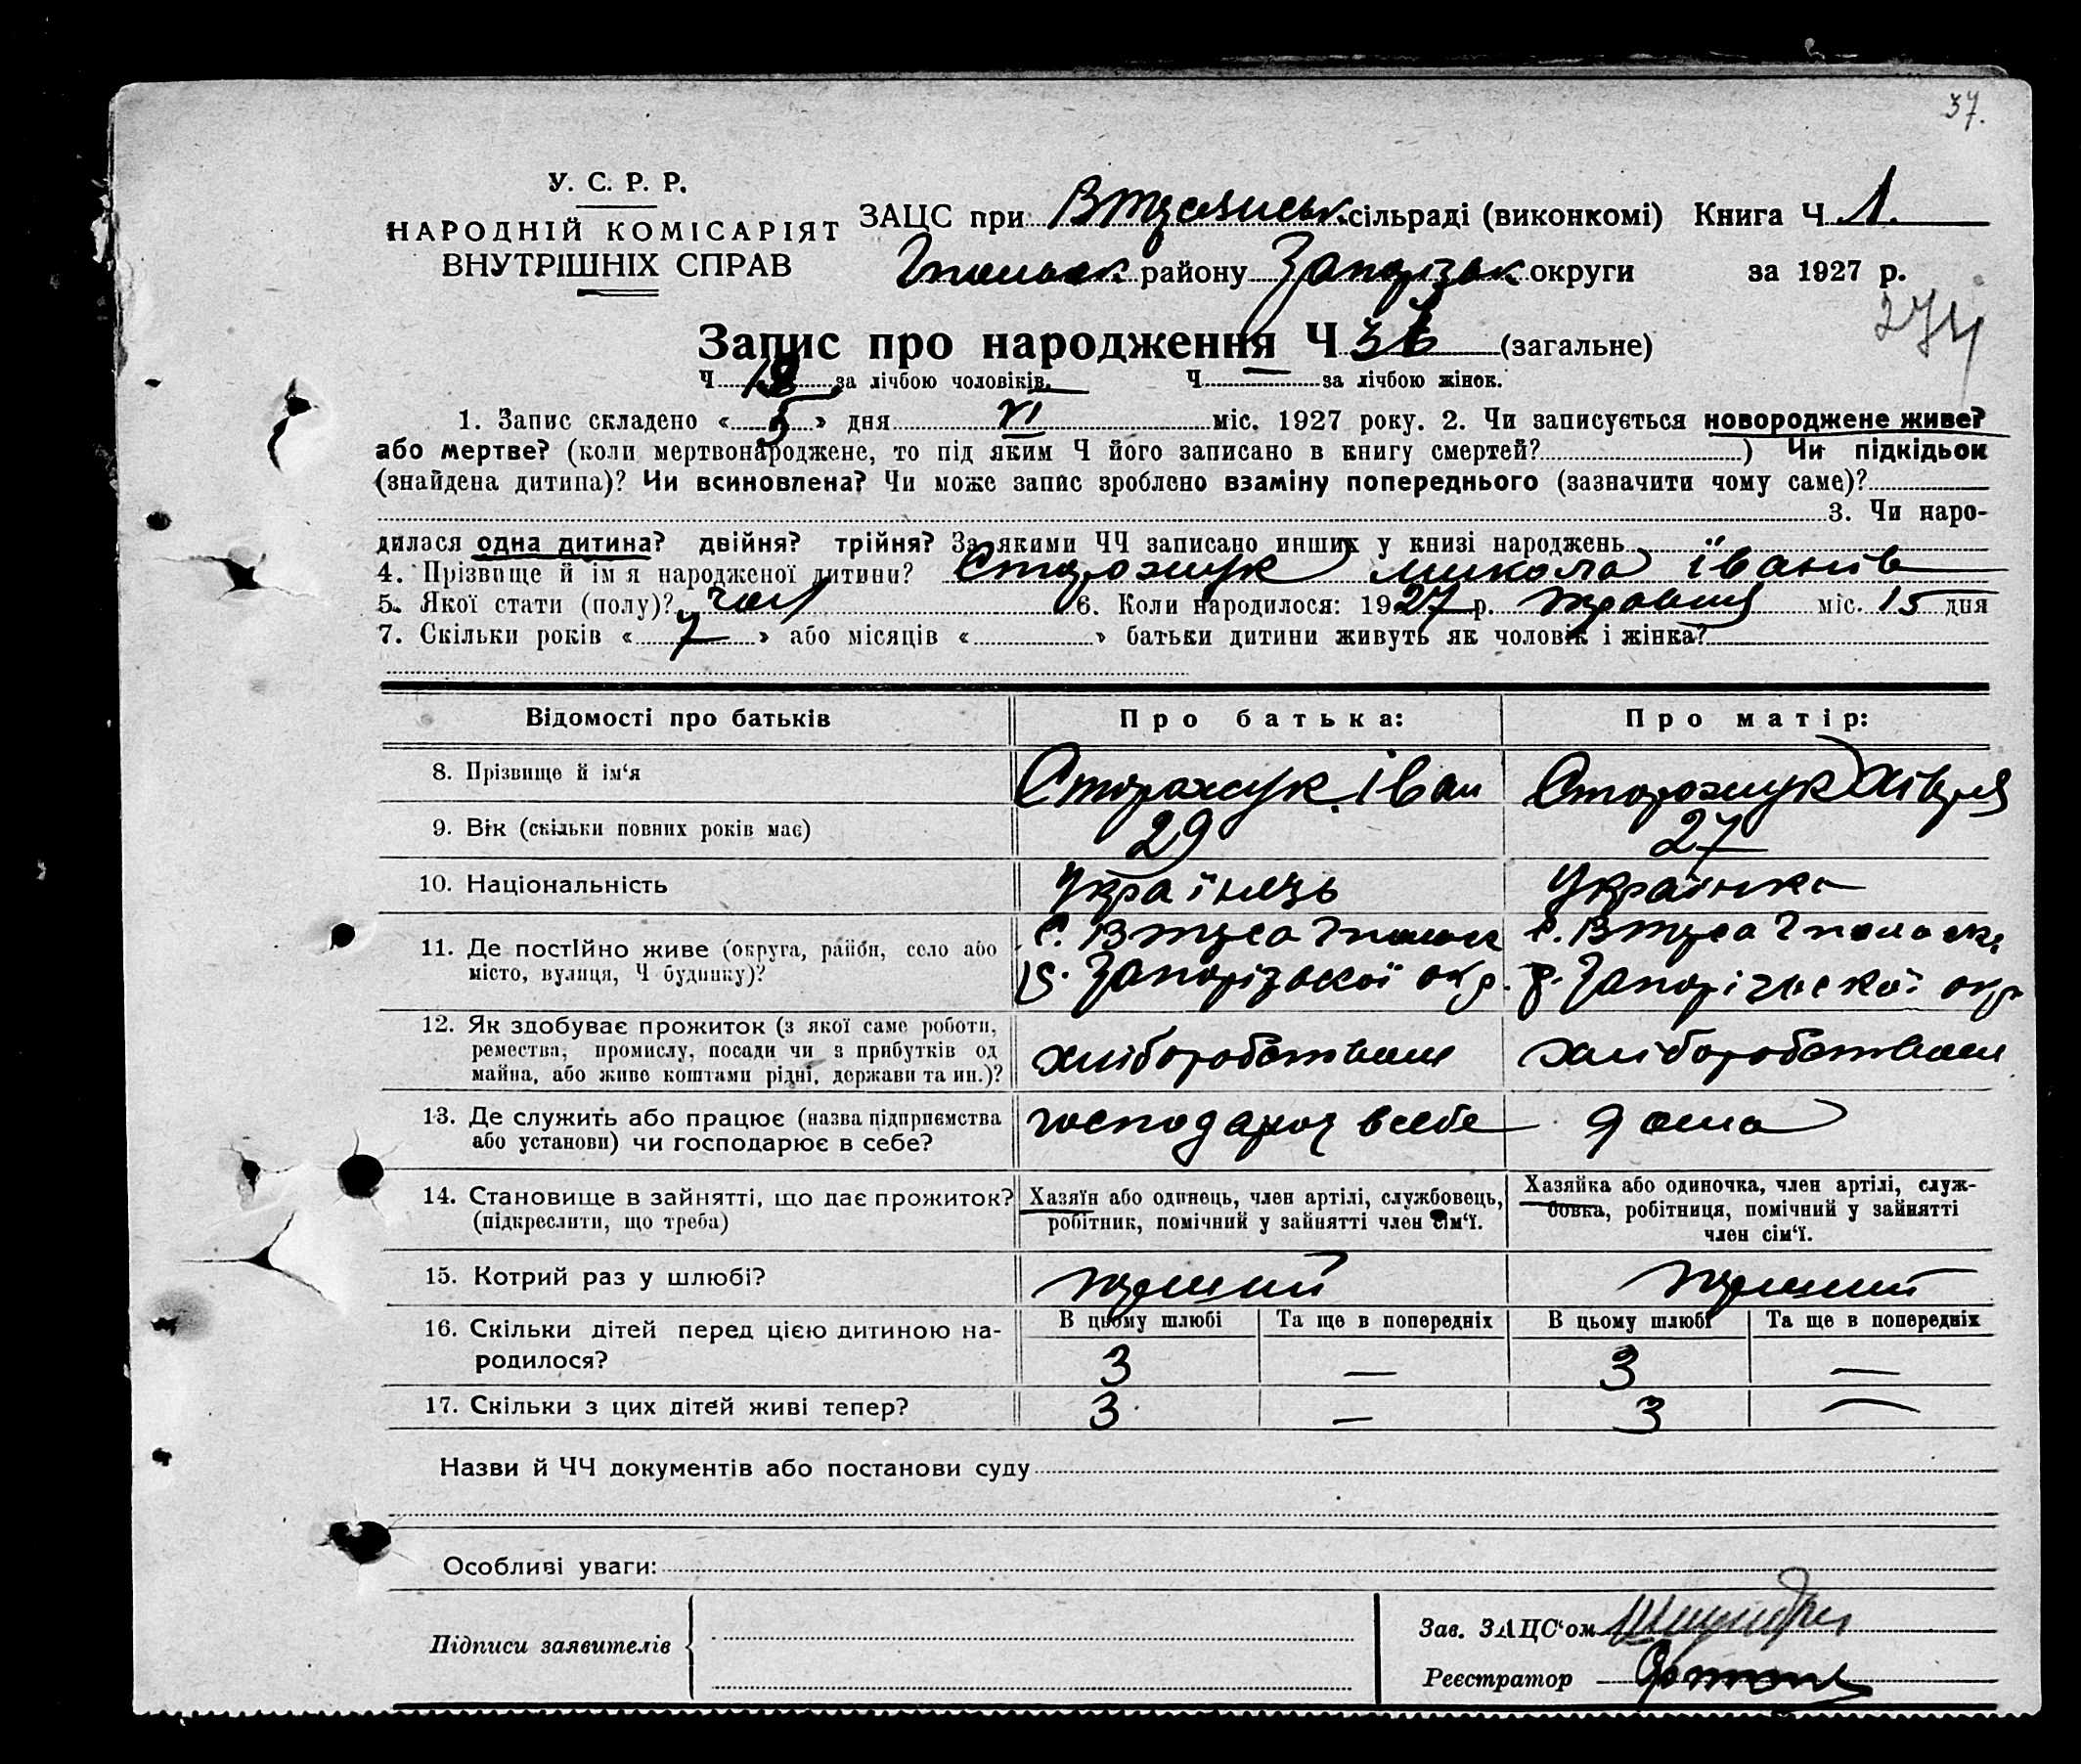 37.
У. С. Р. Р.
НАРОДНІЙ КОМІСАРІЯТ
ВНУТРІШНІХ СПРАВ
ЗАЦС при сільраді (виконкомі) Книга Ч 1.
району Запорізьк округи за 1927 р.
274
Запис про народження Ч 36 (загальне)
Ч 18 за лічбою чоловіків. Ч за лічбою жінок.
1. Запис складено « 5 » дня VI міс. 1927 року. 2. Чи записується новороджене живе?
або мертве? (коли мертвонароджене, то під яким Ч його записано в книгу смертей? ) Чи підкідьок
(знайдена дитина)? Чи всиновлена? Чи може запис зроблено взаміну попереднього (зазначити чому саме)?
3. Чи наро-
дилася одна дитина? двійня? трійня? За якими ЧЧ записано инших у книзі народжень
4. Прізвище й ім я народженої дитини? Сторожук Микола Іванів
5. Якої стати (полу)? чол 6. Коли народилося: 1927 р. травня міс. 15 дня
7. Скільки років « 7 » або місяців « » батьки дитини живуть як чоловік і жінка?
Відомості про батьків Про батька: Про матір:
8. Прізвище й ім‘я Сторожук Іван Сторожук Хівря
9. Вік (скільки повних років має) 29 27
10. Національність Українець Українка
11. Де постійно живе (округа, район, село або
місто, вулиця, Ч будинку)?
р. Запорізької окр. р. Запорізької окр
12. Як здобуває прожиток (з якої саме роботи,
ремества, промислу, посади чи з прибутків од
майна, або живе коштами рідні, держави та ин.)?
хліборобством хліборобством
13. Де служить або працює (назва підприємства
або установи) чи господарює в себе?
господарює в себе дома
14. Становище в зайнятті, що дає прожиток?
(підкреслити, що треба)
Хазяїн або одинець, член артілі, службовець,
робітник, помічний у зайнятті член сім‘ї.
Хазяйка або одиночка, член артілі, служ-
бовка, робітниця, помічний у зайнятті
член сім‘ї.
15. Котрий раз у шлюбі? перший перший
16. Скільки дітей перед цією дитиною на-
родилося?
В цьому шлюбі Та ще в попередніх В цьому шлюбі Та ще в попередніх
3 — 3 —
17. Скільки з цих дітей живі тепер? 3 — 3 —
Назви й ЧЧ документів або постанови суду
Особливі уваги:
Підписи заявителів
Зав. ЗАЦС‘ом
Реєстратор